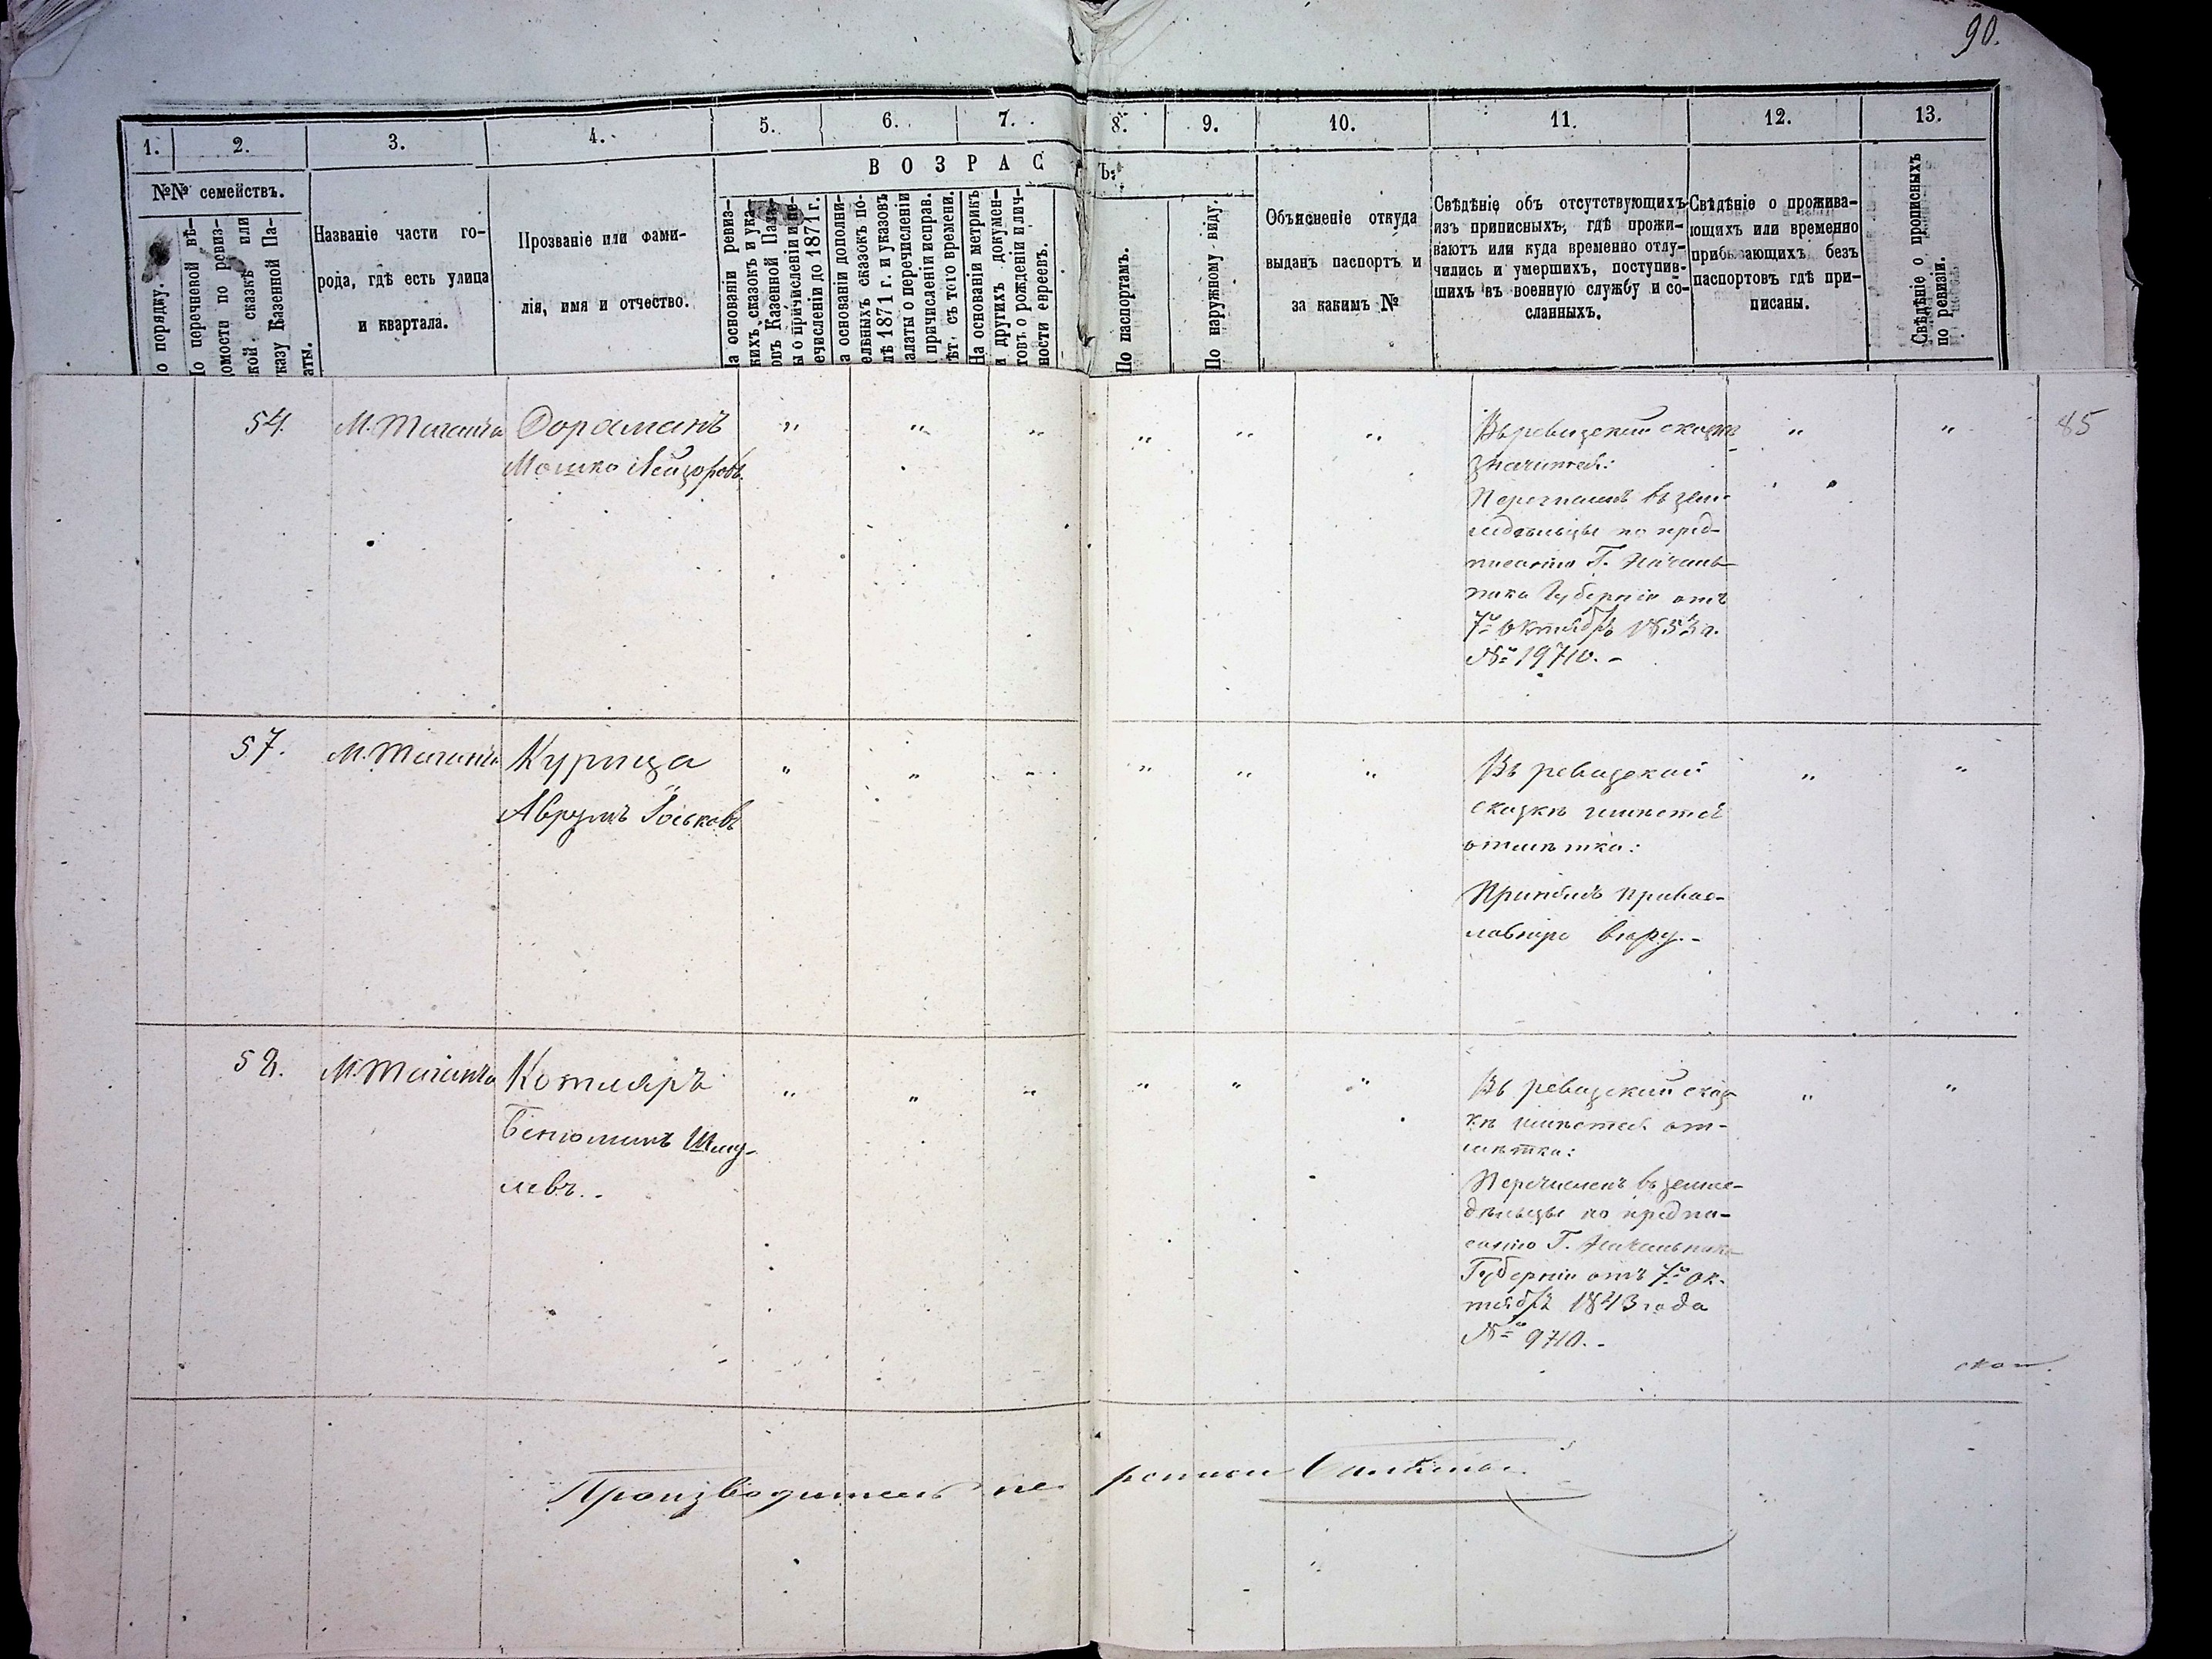 90.
1.
2.
3.
4.
5.
6.
7.
8.
9.
10.
11.
12.
13.
ВОЗРАС
Ъ.
№№ семействъ.
о порядку.
о перечневой вѣ-
омости по ревиз-
кой сказкѣ или
указу Казенной Па-
аты.
Названіе части го-
рода, гдѣ есть улица
и квартала.
Прозваніе или фами-
лія, имя и отчество.
а основаніи ревиз-
кихъ сказокъ и ука-
овъ Казенной Пала-
ы о причисленіи и пе-
ечисленіи до 1871 г.
а основаніи дополни-
ельныхъ сказокъ по-
лѣ 1871 г. и указовъ
алаты о перечисленіи
причисленіи исправ.
ѣт. съ того времени.
На основаніи метрикъ
и другихъ докумен-
товъ о рожденіи или лич-
ности евреевъ.
По паспортамъ.
По наружному виду.
Объясненіе откуда
выданъ паспортъ и
за какимъ №
Свѣдѣніе объ отсутствующихъ
изъ приписныхъ, гдѣ прожи-
ваютъ или куда временно отлу-
чились и умершихъ, поступив-
шихъ въ военную службу и со-
сланныхъ.
Свѣдѣніе о прожива-
ющихъ или временно
прибывающихъ безъ
паспортовъ гдѣ при-
писаны.
Свѣдѣніе о прописныхъ
по ревизіи.
85
54.
М. Таганча
Дораманъ
Мошко Лейзоровъ
" " " " " "
Въ ревизской сказкѣ
значится:
въ земле-
дѣльцы по пред-
писанію Г. Началь-
ника Губерніи отъ
7го Октября 1853 г.
№ 19710. -
" "
57.
М. Таганча
Курица
Аврумъ Іоськовъ
" " " " " "
Въ ревизской
сказкѣ имѣется
отмѣтка:
Принялъ правос-
лавную вѣру. -
" "
58.
М. Таганча
Котляръ
Бенюминъ Шму-
левъ. -
" " " " " "
Въ ревизской сказ-
кѣ имѣется от-
мѣтка:
Перечисленъ въ земле-
дѣльцы по предпи-
санію Г. Начальника
Губерніи отъ 7го Ок-
тября 1843 года
№ 9710. -
" "
Производитель пе реписи